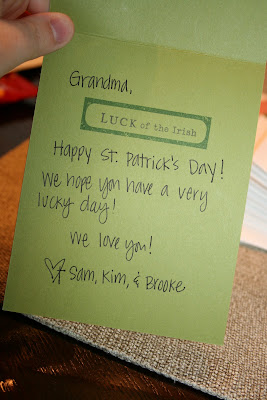 Grandma,
LUCK of the Irish
Happy St. Patrick's Day!
We hope you have a very
lucky day!
We love you!
Sam, Kim, & Brooke